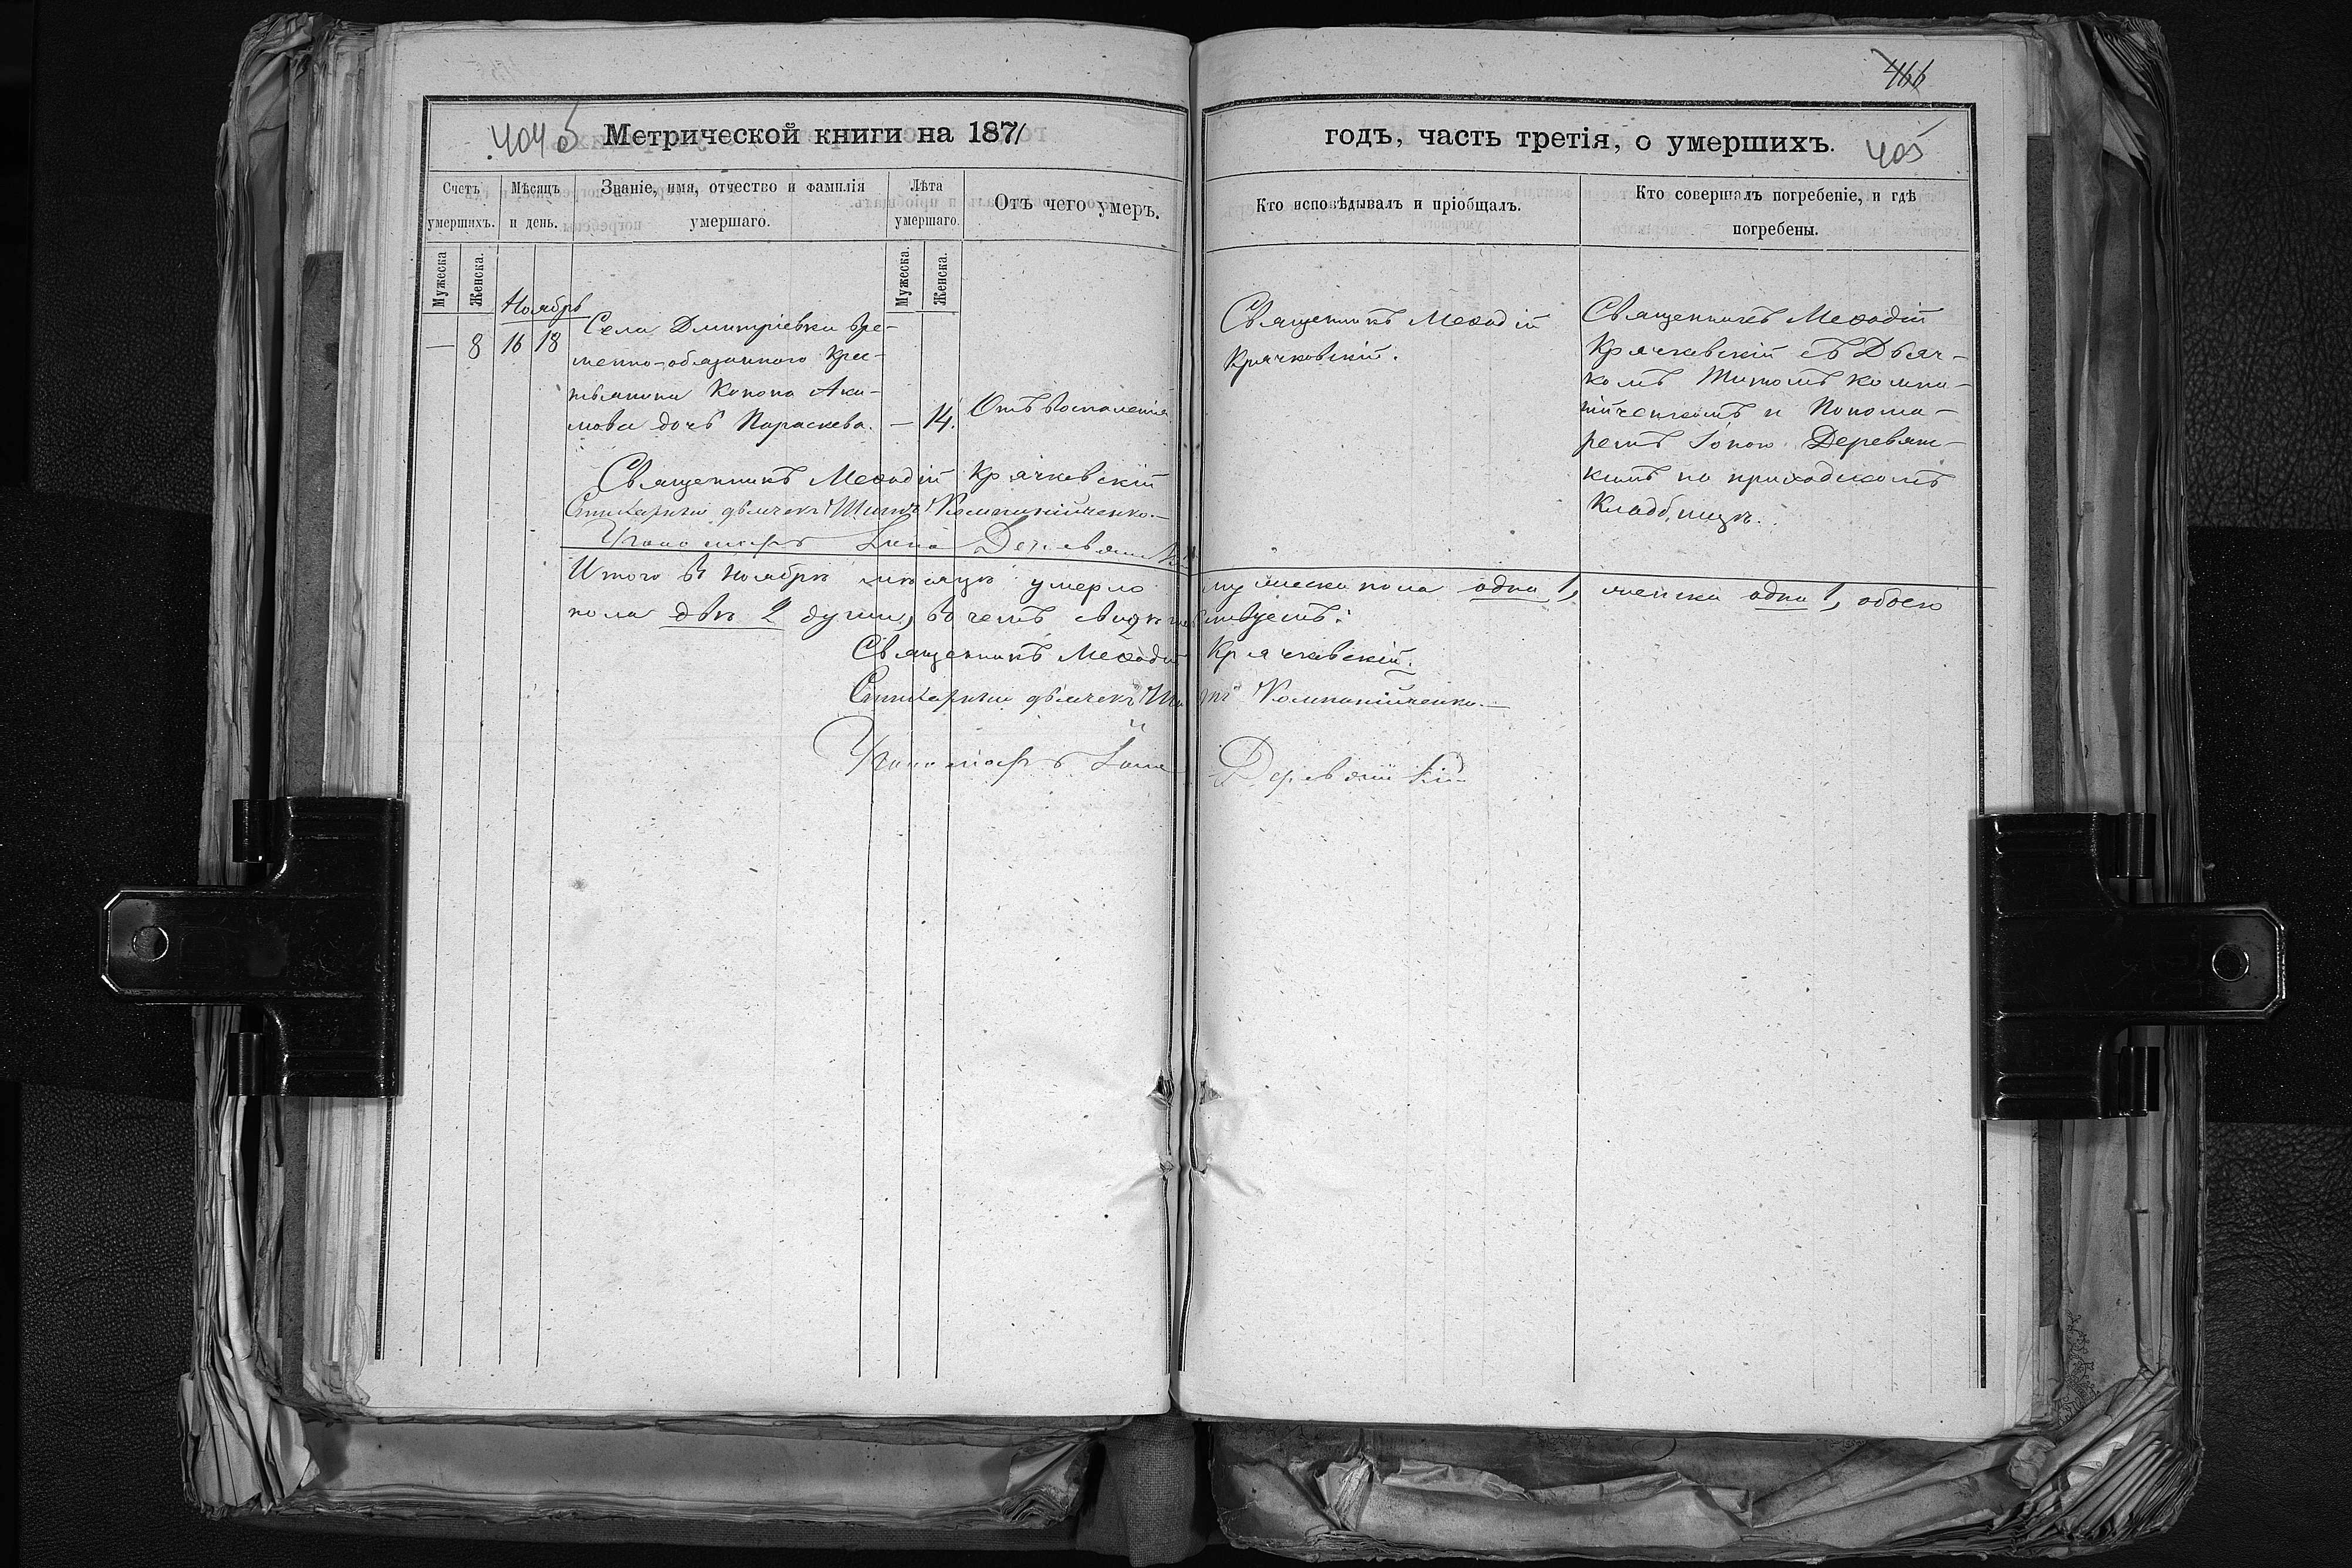 466
404 б Метрической книги на 1871 годъ, часть третія, о умершихъ. 405
Счетъ умершихъ.
Мѣсяцъ и день.
Званіе, имя, отчество и фамилія умершаго.
Лѣта умершаго.
Отъ чего умеръ.
Кто исповѣдывалъ и пріобщалъ.
Кто совершалъ погребеніе, и гдѣ погребены.
Мужеска.
Женска.
Мужеска.
Женска.
Ноябрь
— 8 16 18
Села Дмитріевки вре-
менно-обязаннаго крес-
тьянина Конона Аки-
мова дочь Параскева.
— 14.
Отъ воспаленія
Священникъ Меѳодій
Крячковскій.
Священникъ Меѳодій
Крячковскій съ Дьяч-
комъ Титомъ Компа-
нійченкомъ и Понома-
ремъ Іоною Деревян-
кимъ на приходскомъ
Кладбищѣ.
Священникъ Меѳодій Крячковскій
Стихарный дьячекъ Титъ Компанійченко.—
Пономарь Іона
Итого въ Ноябрѣ мѣсяцѣ умерло мужеска пола одна 1, женска одна 1, обоего
пола двѣ 2 души, въ чемъ свидѣтельствуемъ:
Священникъ Меѳодій Крячковскій.
Стихарный дьячекъ Титъ Компанійченко.—
Пономарь Іона